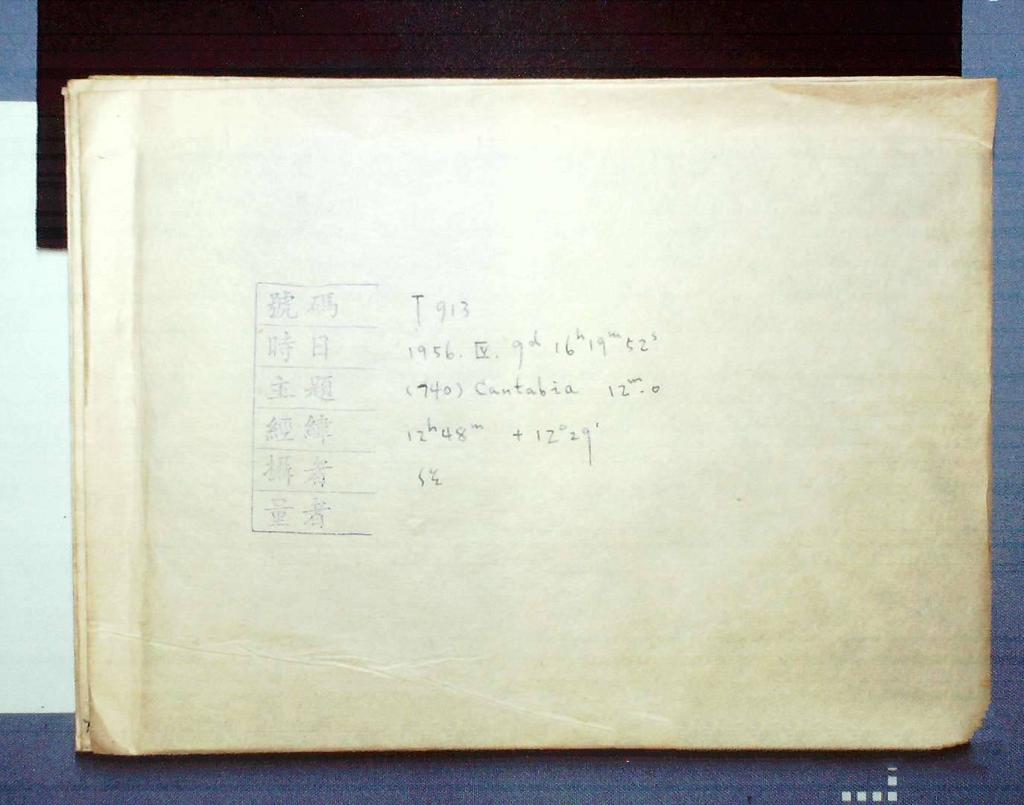 號碼 T 913
時日 1956. IV. 9ᵈ 16ʰ19ᵐ52ˢ
主題 (740) Cantabia 12ᵐ.0
經緯 12ʰ48ᵐ +12°29'
攝者
量者